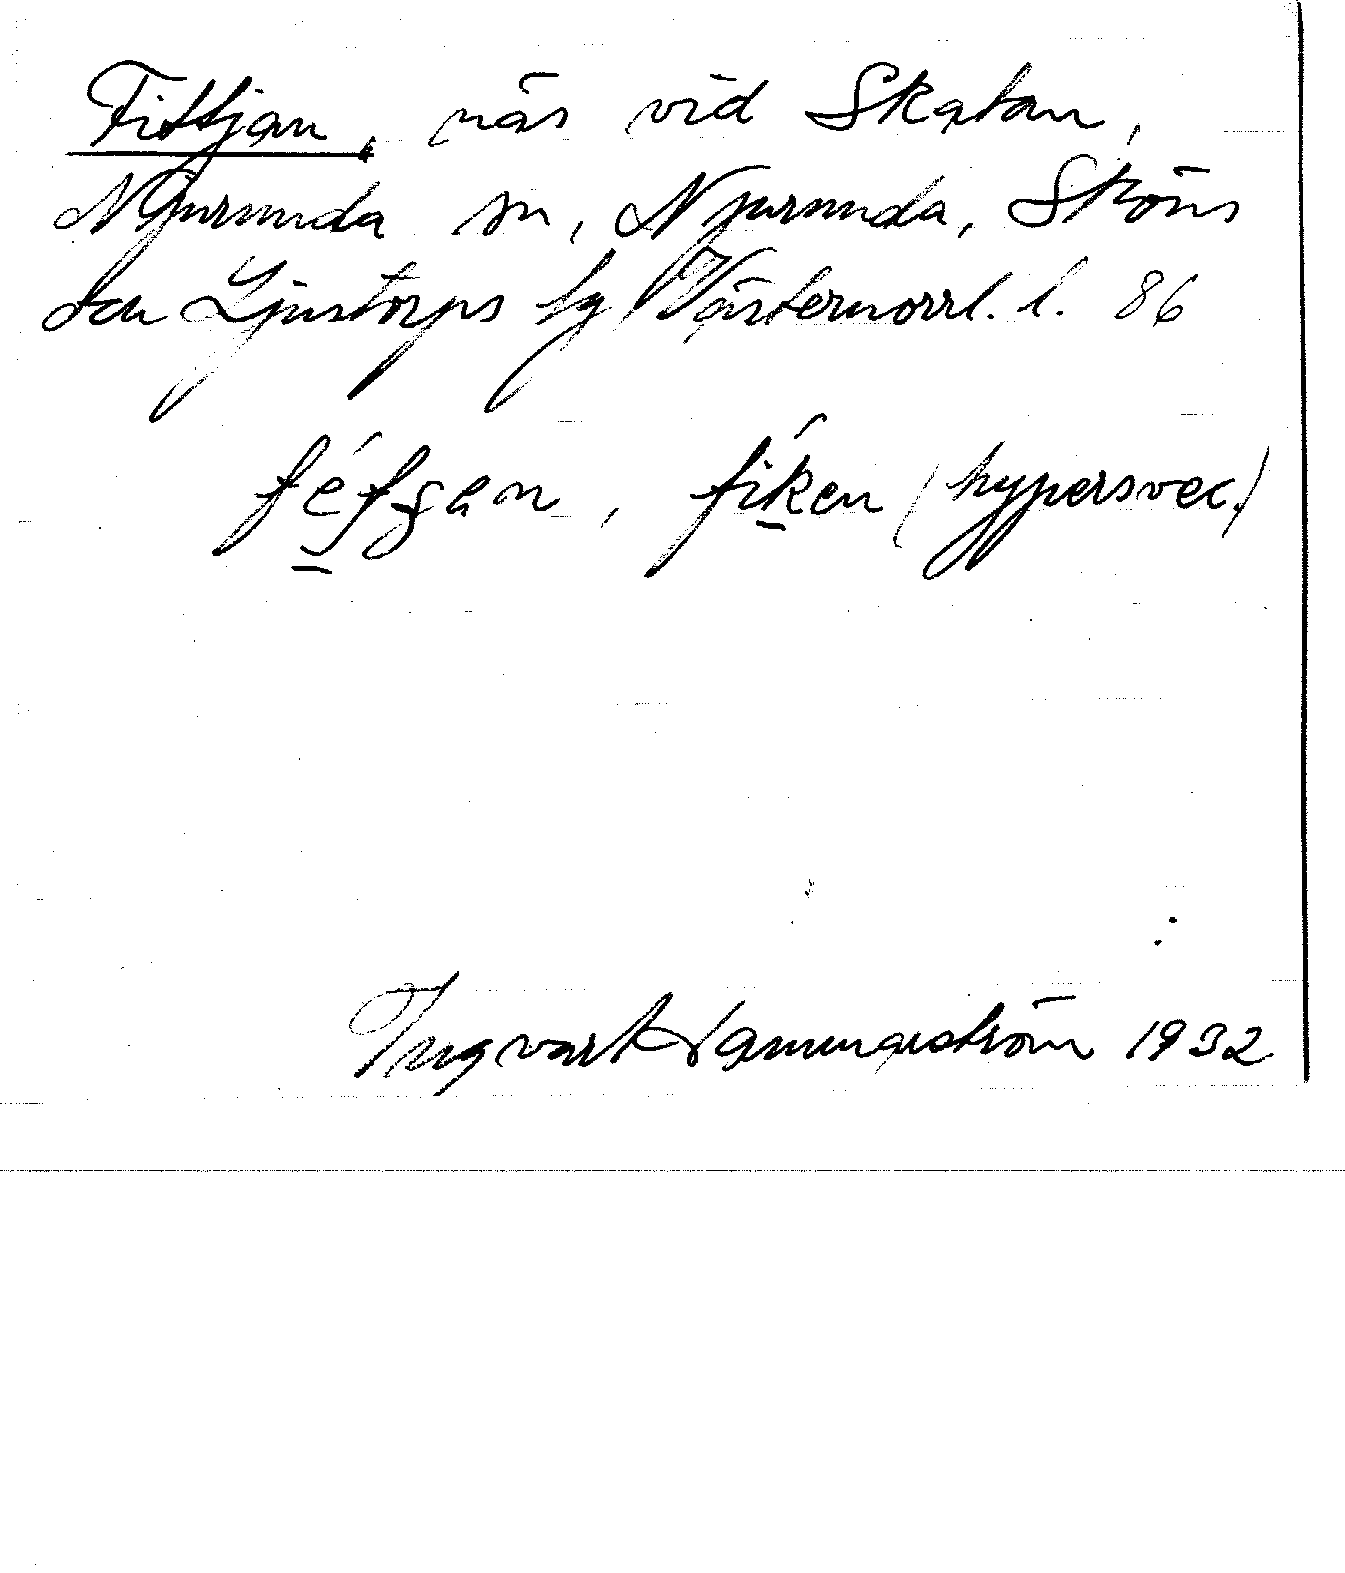 Fittjan, näs vid Skatan,
Njurunda sn, Njurunda, Sköns
och Ljustorps tg Västernorrl. l. 86
fiken (hypersvec.)
Ingvar Hammarström 1932